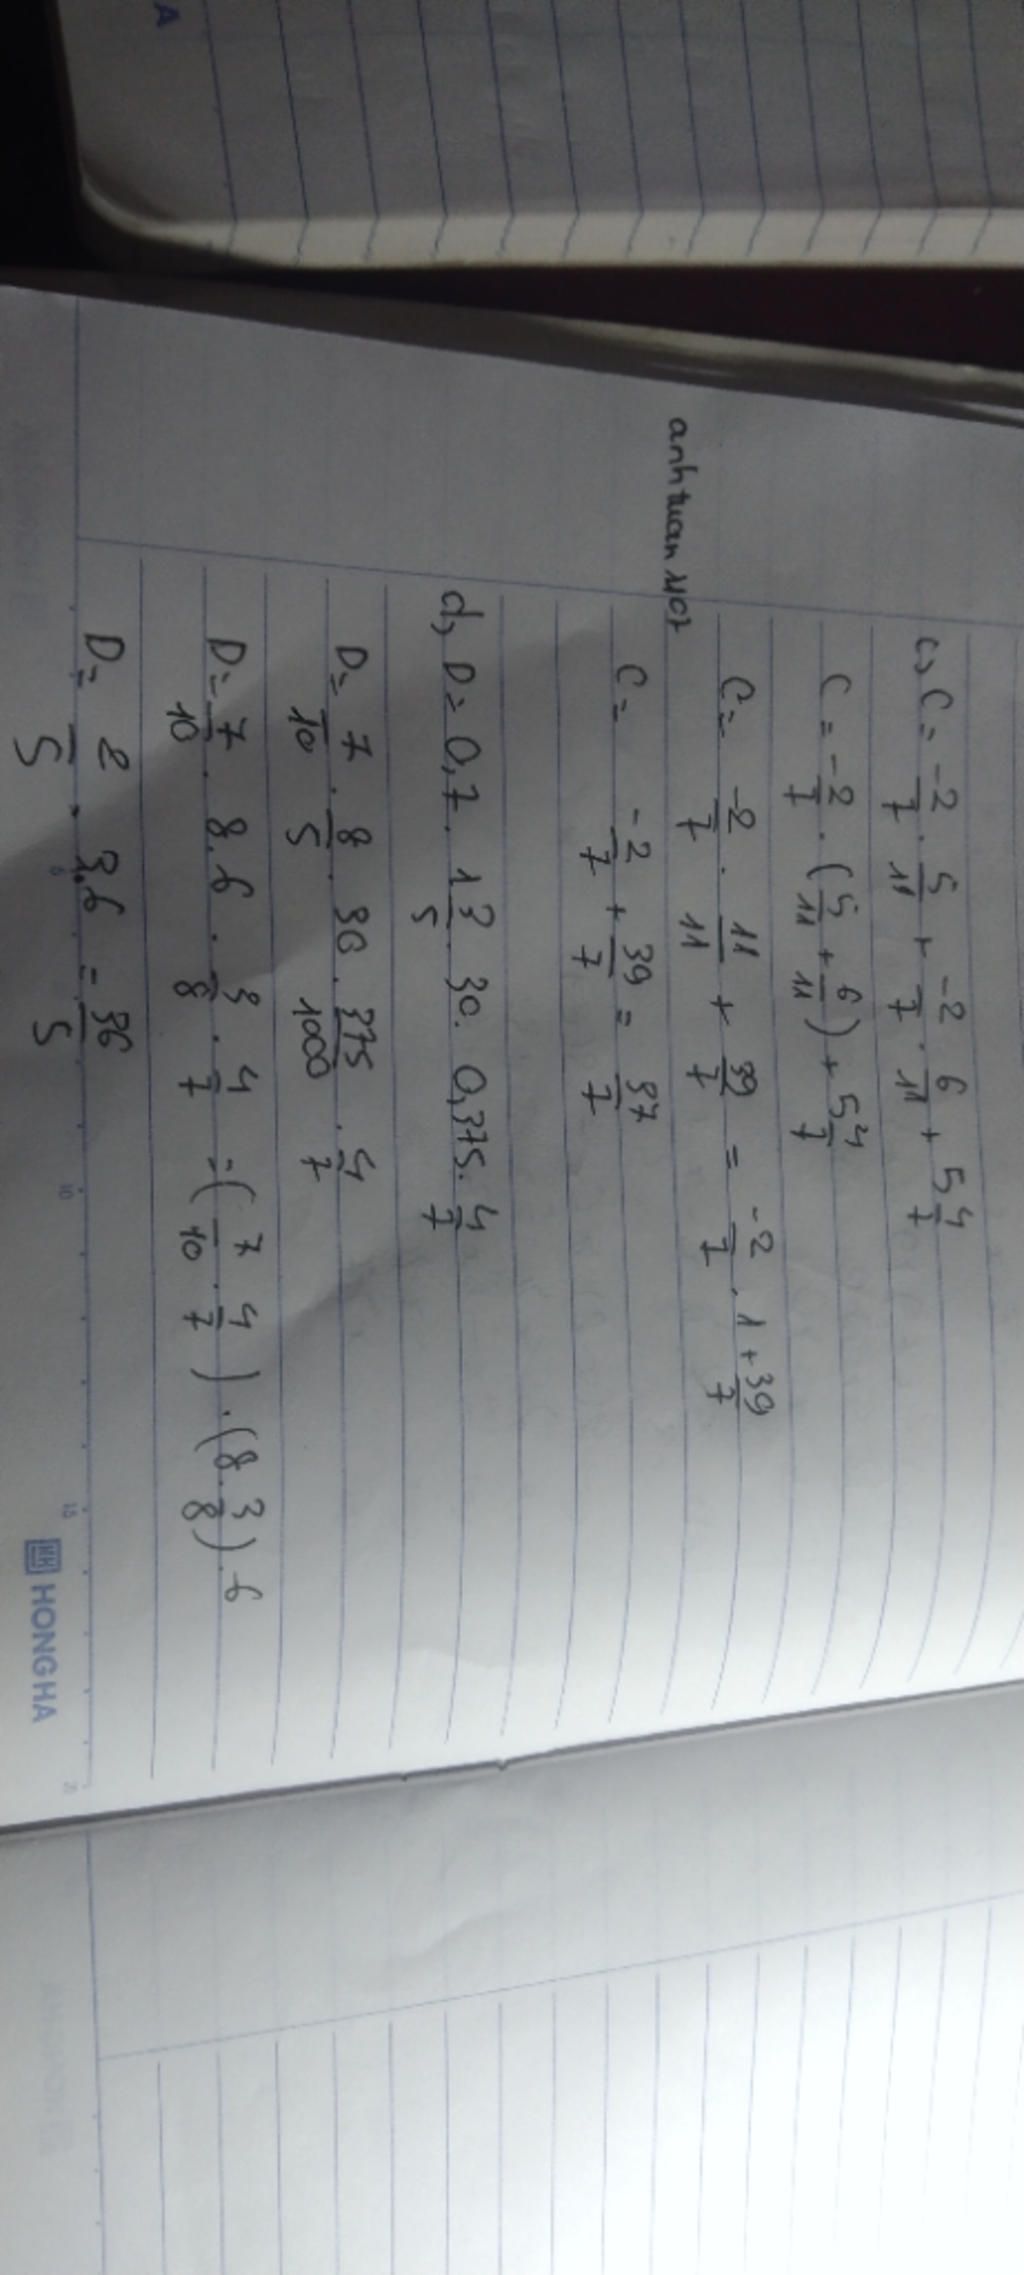 c, C = -2/7 . 5/11 + -2/7 . 6/11 + 5 4/7
C = -2/7 . (5/11 + 6/11) + 5 4/7
C = -2/7 . 11/11 + 39/7 = -2/7 . 1 + 39/7
anhtuan 1107
C = -2/7 + 39/7 = 37/7
d, D = 0,7 . 1 3/5 . 30 . 0,375 . 4/7
D = 7/10 . 8/5 . 30 . 375/1000 . 4/7
D = 7/10 . 8.6 . 3/8 . 4/7 = (7/10 . 4/7) . (8 . 3/8) . 6
D = 2/5 . 3.6 = 36/5
HONG HA